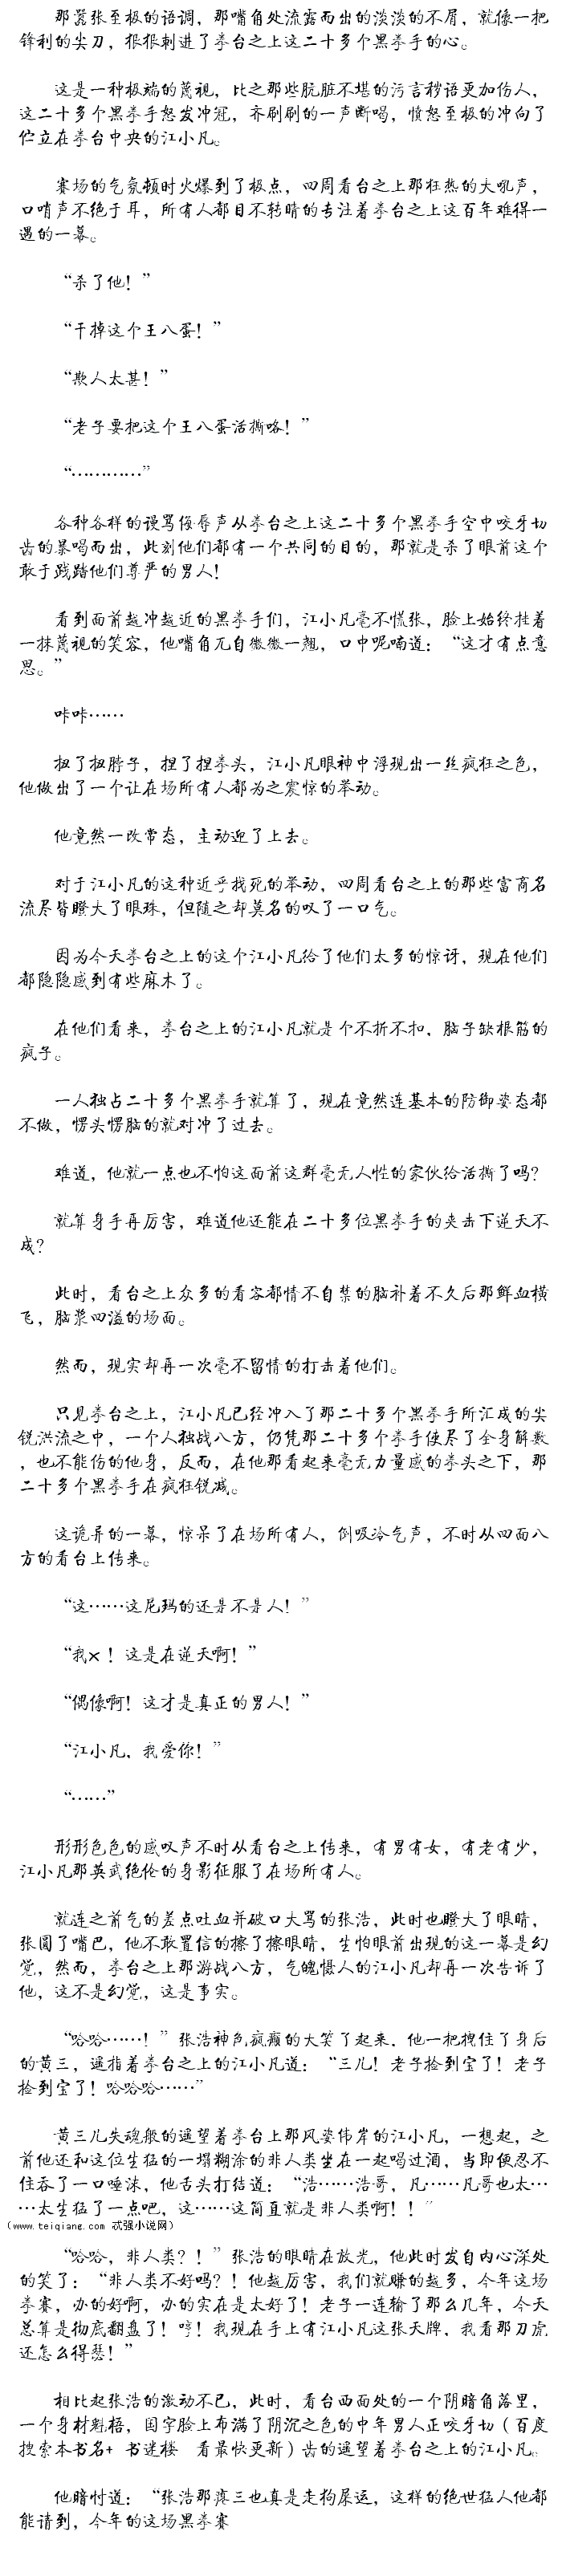 那嚣张至极的语调，那嘴角处流露而出的淡淡的不屑，就像一把
锋利的尖刀，狠狠刺进了拳台之上这二十多个黑拳手的心。
这是一种极端的蔑视，比之那些肮脏不堪的污言秽语更加伤人，
这二十多个黑拳手怒发冲冠，齐刷刷的一声断喝，愤怒至极的冲向了
伫立在拳台中央的江小凡。
赛场的气氛顿时火爆到了极点，四周看台之上那狂热的大吼声，
口哨声不绝于耳，所有人都目不转睛的专注着拳台之上这百年难得一
遇的一幕。
“杀了他！”
“干掉这个王八蛋！”
“欺人太甚！”
“老子要把这个王八蛋活撕咯！”
“…………”
各种各样的谩骂侮辱声从拳台之上这二十多个黑拳手空中咬牙切
齿的暴喝而出，此刻他们都有一个共同的目的，那就是杀了眼前这个
敢于践踏他们尊严的男人！
看到面前越冲越近的黑拳手们，江小凡毫不慌张，脸上始终挂着
一抹蔑视的笑容，他嘴角兀自微微一翘，口中呢喃道：“这才有点意
思。”
咔咔……
扭了扭脖子，捏了捏拳头，江小凡眼神中浮现出一丝疯狂之色，
他做出了一个让在场所有人都为之震惊的举动。
他竟然一改常态，主动迎了上去。
对于江小凡的这种近乎找死的举动，四周看台之上的那些富商名
流尽皆瞪大了眼珠，但随之却莫名的叹了一口气。
因为今天拳台之上的这个江小凡给了他们太多的惊讶，现在他们
都隐隐感到有些麻木了。
在他们看来，拳台之上的江小凡就是个不折不扣，脑子缺根筋的
疯子。
一人独占二十多个黑拳手就算了，现在竟然连基本的防御姿态都
不做，愣头愣脑的就对冲了过去。
难道，他就一点也不怕这面前这群毫无人性的家伙给活撕了吗？
就算身手再厉害，难道他还能在二十多位黑拳手的夹击下逆天不
成？
此时，看台之上众多的看客都情不自禁的脑补着不久后那鲜血横
飞，脑浆四溢的场面。
然而，现实却再一次毫不留情的打击着他们。
只见拳台之上，江小凡已经冲入了那二十多个黑拳手所汇成的尖
锐洪流之中，一个人独战八方，仍凭那二十多个拳手使尽了全身解数
，也不能伤的他身，反而，在他那看起来毫无力量感的拳头之下，那
二十多个黑拳手在疯狂锐减。
这诡异的一幕，惊呆了在场所有人，倒吸冷气声，不时从四面八
方的看台上传来。
“这……这尼玛的还是不是人！”
“我×！这是在逆天啊！”
“偶像啊！这才是真正的男人！”
“江小凡，我爱你！”
“……”
形形色色的感叹声不时从看台之上传来，有男有女，有老有少，
江小凡那英武绝伦的身影征服了在场所有人。
就连之前气的差点吐血并破口大骂的张浩，此时也瞪大了眼睛，
张圆了嘴巴，他不敢置信的擦了擦眼睛，生怕眼前出现的这一幕是幻
觉，然而，拳台之上那游战八方，气魄慑人的江小凡却再一次告诉了
他，这不是幻觉，这是事实。
“哈哈……！”张浩神色疯癫的大笑了起来，他一把拽住了身后
的黄三，遥指着拳台之上的江小凡道：“三儿！老子捡到宝了！老子
捡到宝了！哈哈哈……”
黄三儿失魂般的遥望着拳台上那风姿伟岸的江小凡，一想起，之
前他还和这位生猛的一塌糊涂的非人类坐在一起喝过酒，当即便忍不
住吞了一口唾沫，他舌头打结道：“浩……浩哥，凡……凡哥也太…
…太生猛了一点吧，这……这简直就是非人类啊！！”
（www.teiqiang.com 忒强小说网）
“哈哈，非人类？！”张浩的眼睛在放光，他此时发自内心深处
的笑了：“非人类不好吗？！他越厉害，我们就赚的越多，今年这场
拳赛，办的好啊，办的实在是太好了！老子一连输了那么几年，今天
总算是彻底翻盘了！哼！我现在手上有江小凡这张天牌，我看那刀虎
还怎么得瑟！”
相比起张浩的激动不已，此时，看台西面处的一个阴暗角落里，
一个身材魁梧，国字脸上布满了阴沉之色的中年男人正咬牙切（百度
搜索本书名+ 书迷楼　看最快更新）齿的遥望着拳台之上的江小凡。
他暗忖道：“张浩那瘪三也真是走狗屎运，这样的绝世猛人他都
能请到，今年的这场黑拳赛